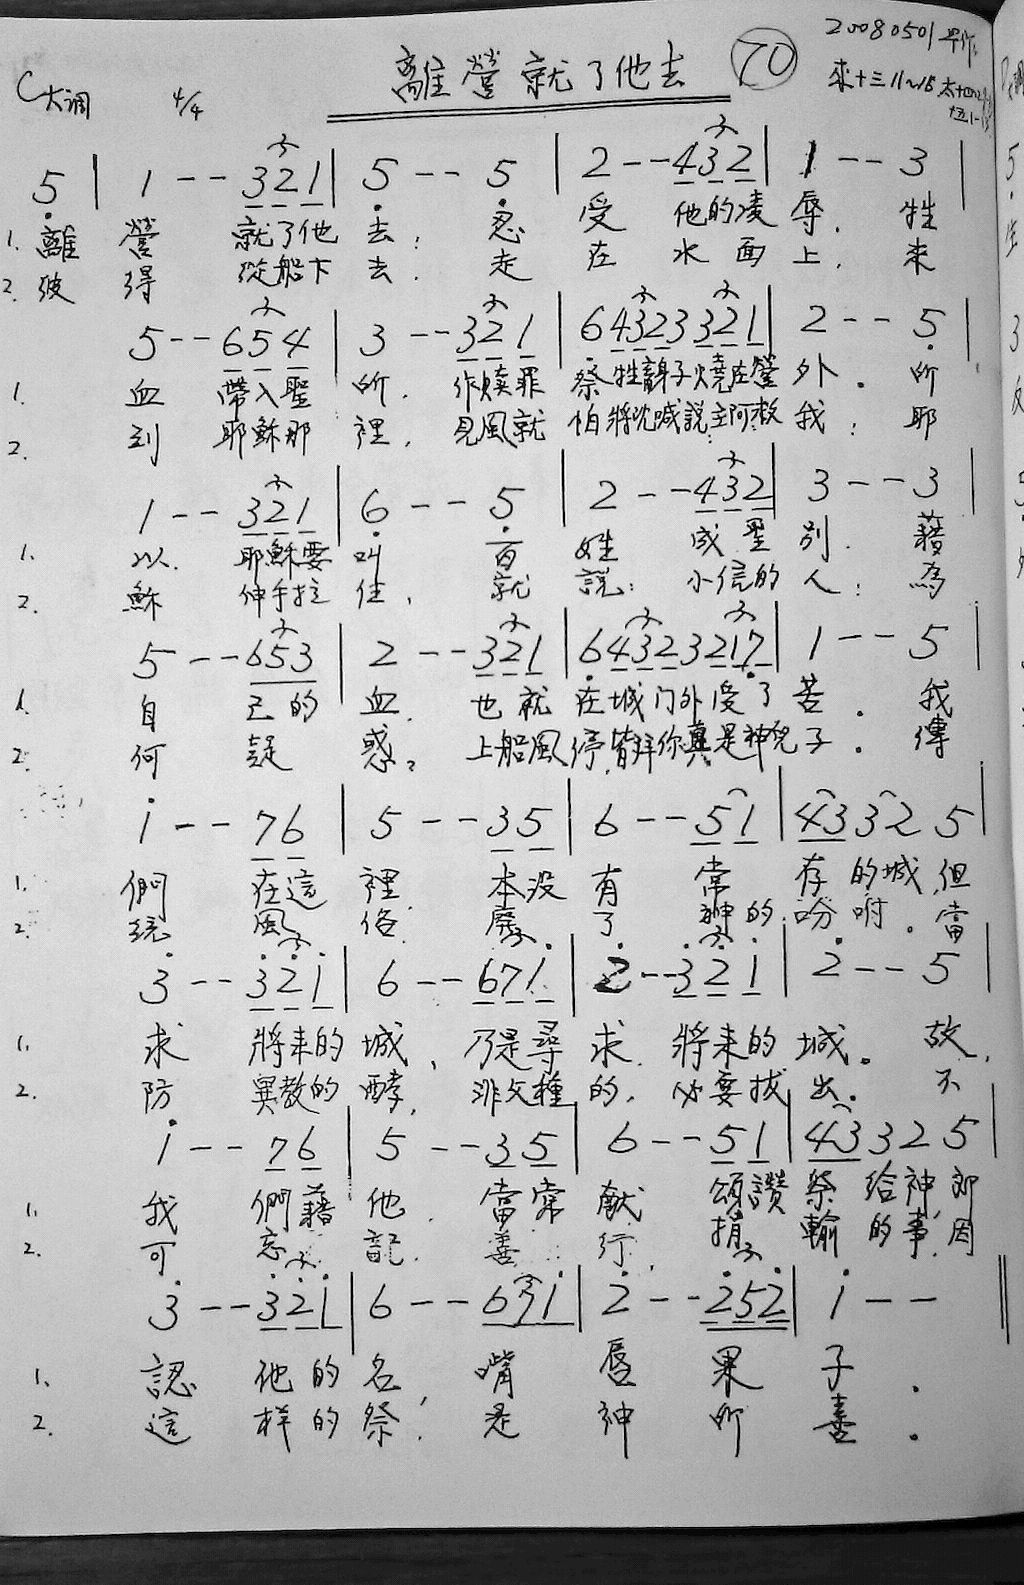 離營就了他去 70
20080501
C大调 4/4
來十三11~16
5 | 1 -- 321 | 5 -- 5 | 2 -- 432 | 1 -- 3 |
1. 離 營 就了他 去; 忍 受 他的凌 辱. 牲
2. 彼 得 從船下 去. 走 在 水面 上. 來
5 -- 654 | 3 -- 321 | 64323321 | 2 -- 5 |
1. 血 帶入聖 所. 作赎罪 祭牲身子燒在營 外. 所
2. 到 耶穌那 裡, 見風就 怕將沈喊説:主阿救 我; 耶
1 -- 321 | 6 -- 5 | 2 -- 432 | 3 -- 3
1. 以. 耶穌要 叫 百 姓 成聖 別. 藉
2. 穌 伸手拉 住, 就 説: 小信的 人; 為
5 -- 653 | 2 -- 321 | 64323217 | 1 -- 5 |
1. 自 己的 血. 也就 在城门外受了 苦. 我
2. 何 疑 惑? 上船風停,皆拜你真是神兒 子. 傳
1 -- 76 | 5 -- 35 | 6 -- 51 | 4332 5 |
1. 們 在這 裡. 本没 有 常 存的城,但
2. 統 風 俗. 廢 了 神的 吩咐. 當
3 -- 321 | 6 -- 671 | 2 -- 321 | 2 -- 5 |
1. 求 將来的 城, 乃是尋 求. 將来的 城. 故,
2. 防 異教的 酵, 非父種 的, 必要拔 出. 不
1 -- 76 | 5 -- 35 | 6 -- 51 | 4332 5 |
1. 我 們藉 他. 當常 献 頌讚 祭给神,即
2. 可 忘 記. 善 行, 捐 輸的事,因
3 -- 321 | 6 -- 671 | 2 -- 252 | 1 -- ||
1. 認 他的 名, 嘴 唇 果 子.
2. 這 样的 祭, 是 神 所 喜.